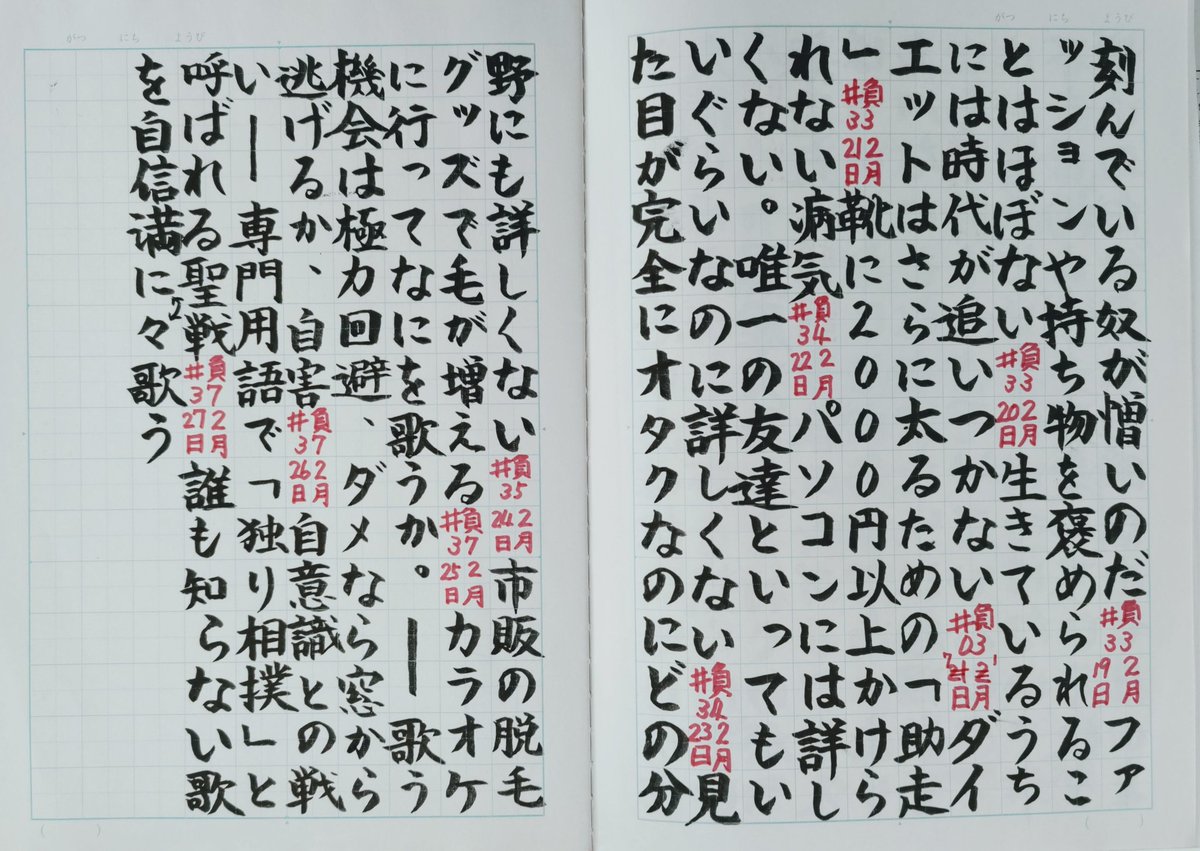 がつ にち ようび
刻んでいる奴が憎いのだ #負33 2月19日 ファ
ッションや持ち物を褒められるこ
とはほぼない #負33 2月20日 生きているうち
には時代が追いつかない #負03 2月21日 ダイ
エットはさらに太るための「助走
」 #負33 2月21日 靴に2000円以上かけら
れない病気 #負34 2月22日 パソコンには詳し
くない。唯一の友達といってもい
いぐらいなのに詳しくない #負34 2月23日 見
た目が完全にオタクなのにどの分
がつ にち ようび
野にも詳しくない #35 2月24日 市販の脱毛
グッズで毛が増える #負37 2月25日 カラオケ
に行ってなにを歌うか。──歌う
機会は極力回避、ダメなら窓から
逃げるか、自害 #負37 2月26日 自意識との戦
い──専門用語で「独り相撲」と
呼ばれる聖戦 #負37 2月27日 誰も知らない歌
を自信満に々歌う